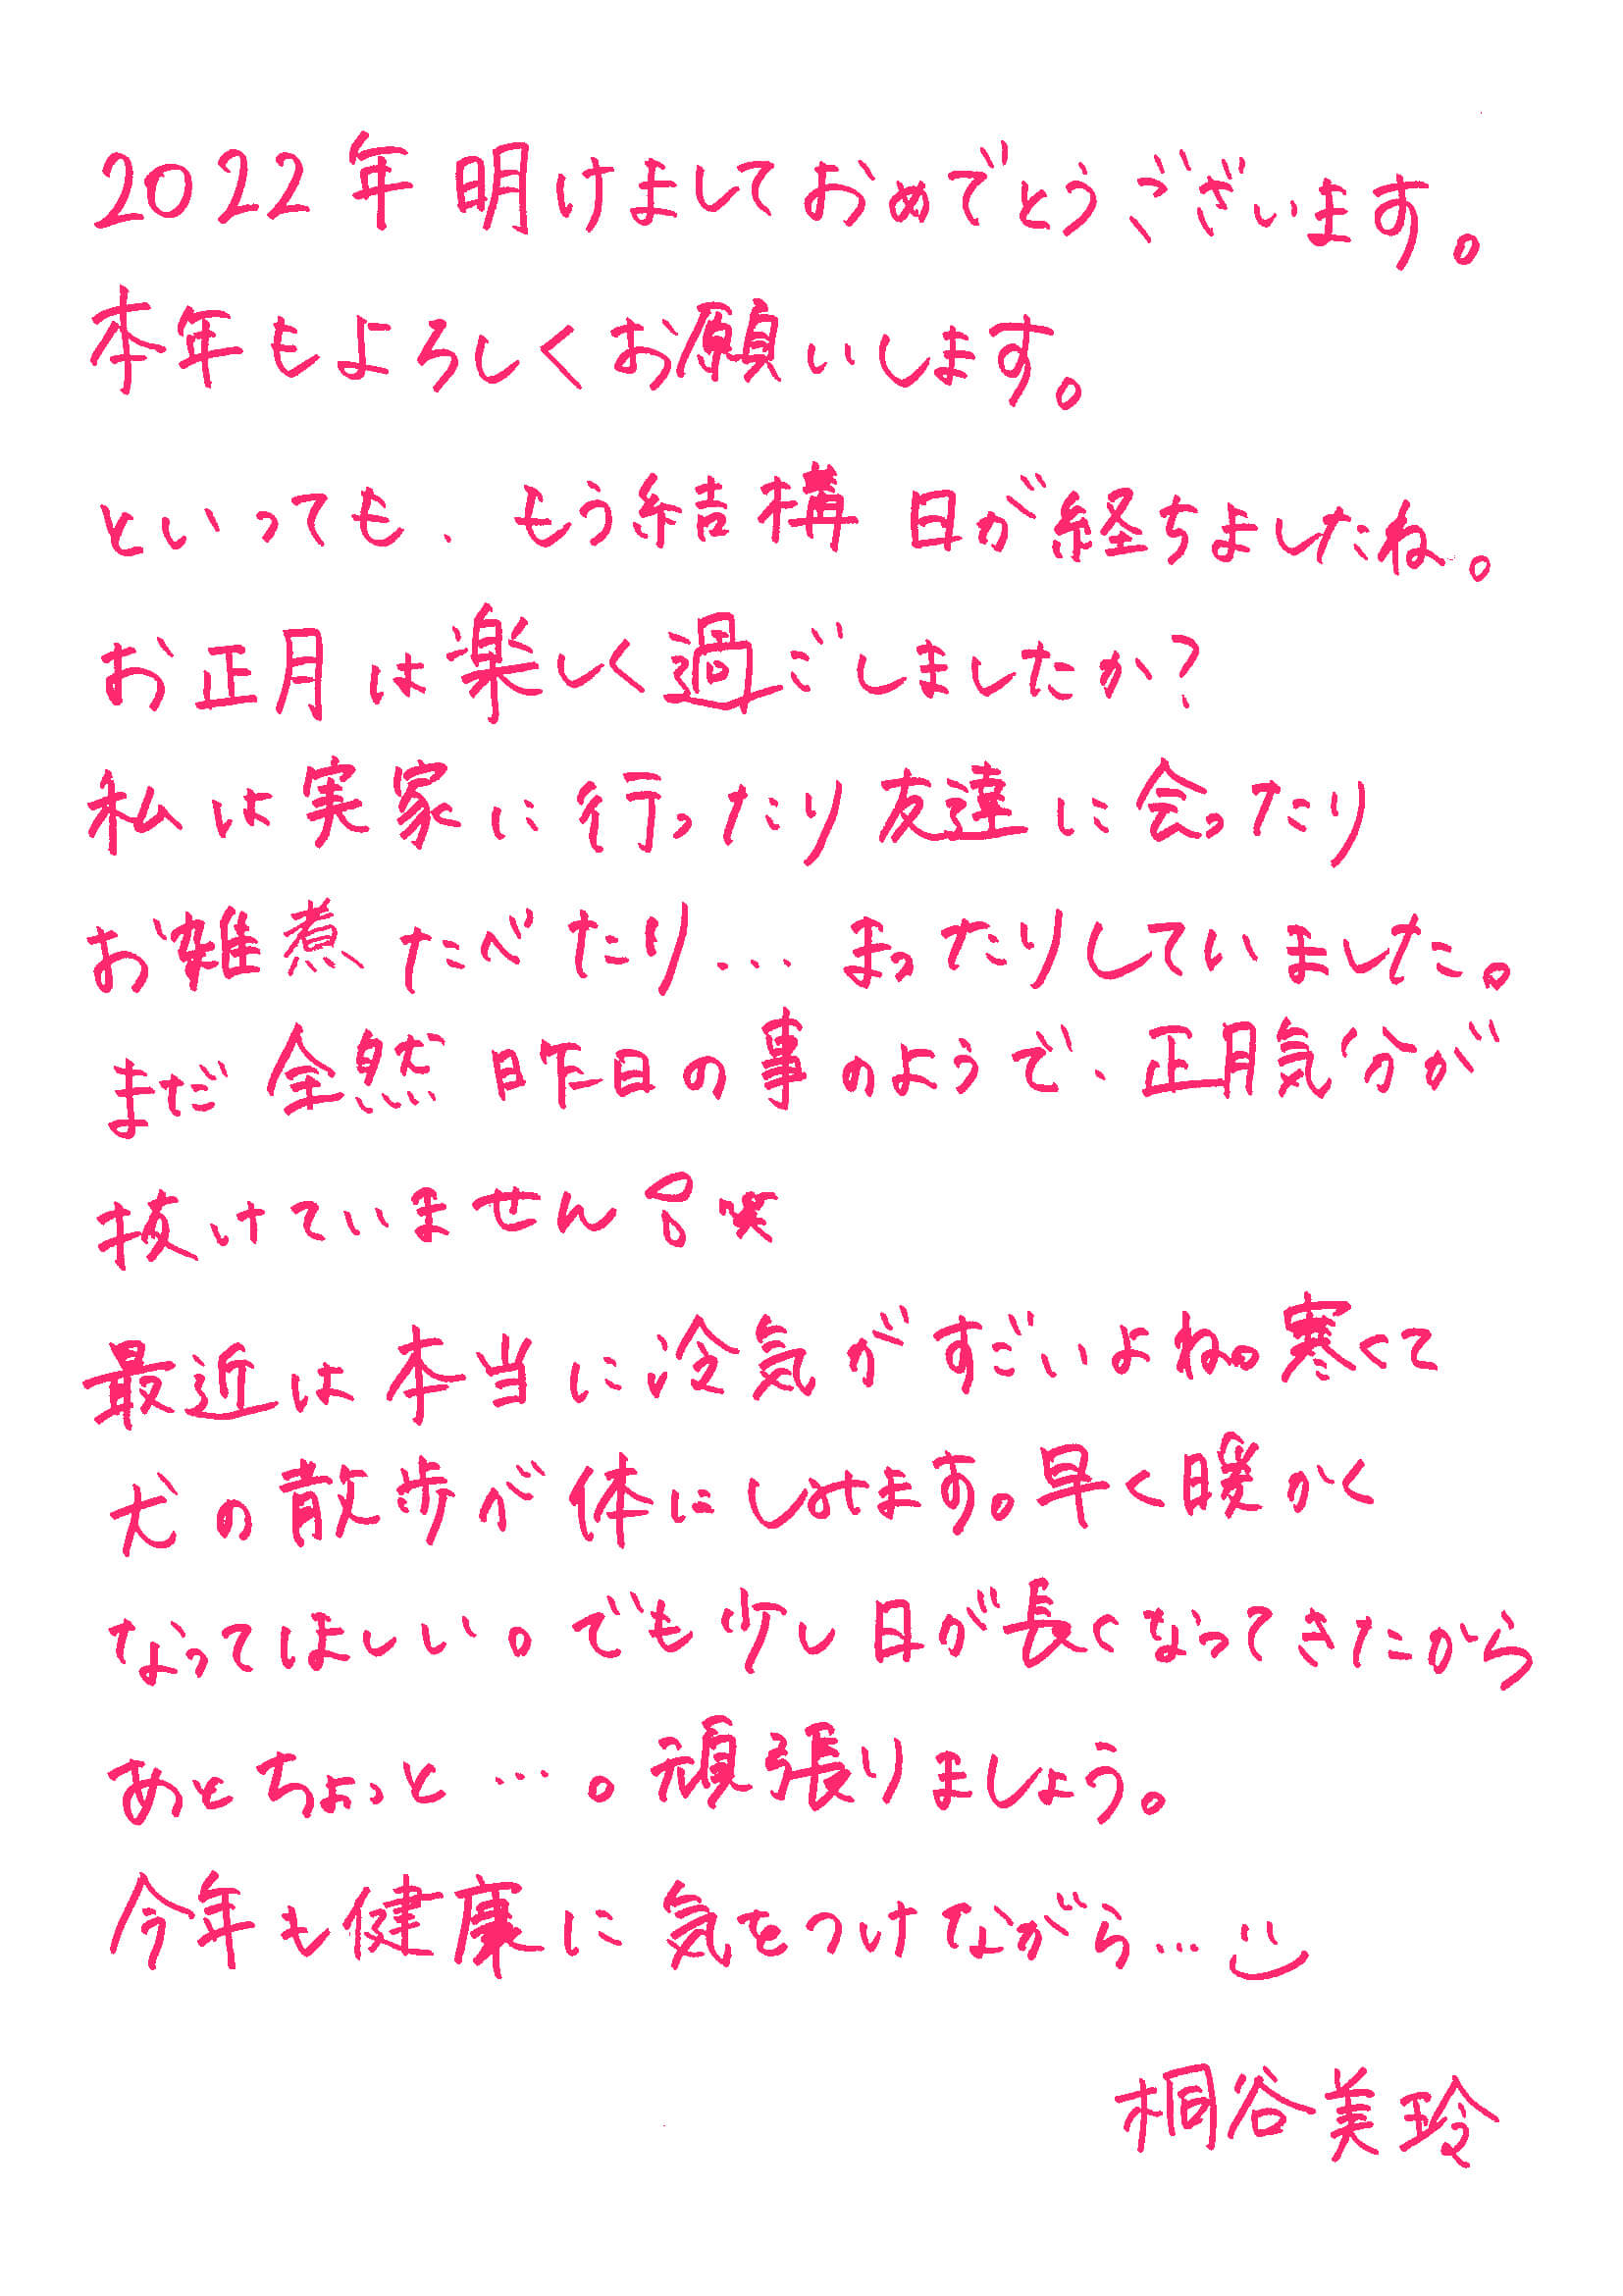 2022年 明けましておめでとうございます。
本年もよろしくお願いします。
といっても、もう結構 日が経ちましたね。
お正月は楽しく過ごしましたか？
私は実家に行ったり友達に会ったり
お雑煮たべたり… まったりしていました。
まだ全然昨日の事のようで、正月気分が
抜けていません！笑
最近は本当に冷気がすごいよね。寒くて
犬の散歩が体にしみます。早く暖かく
なってほしい。でも少し日が長くなってきたから
あとちょっと…。頑張りましょう。
今年も健康に気をつけながら…
桐谷美玲